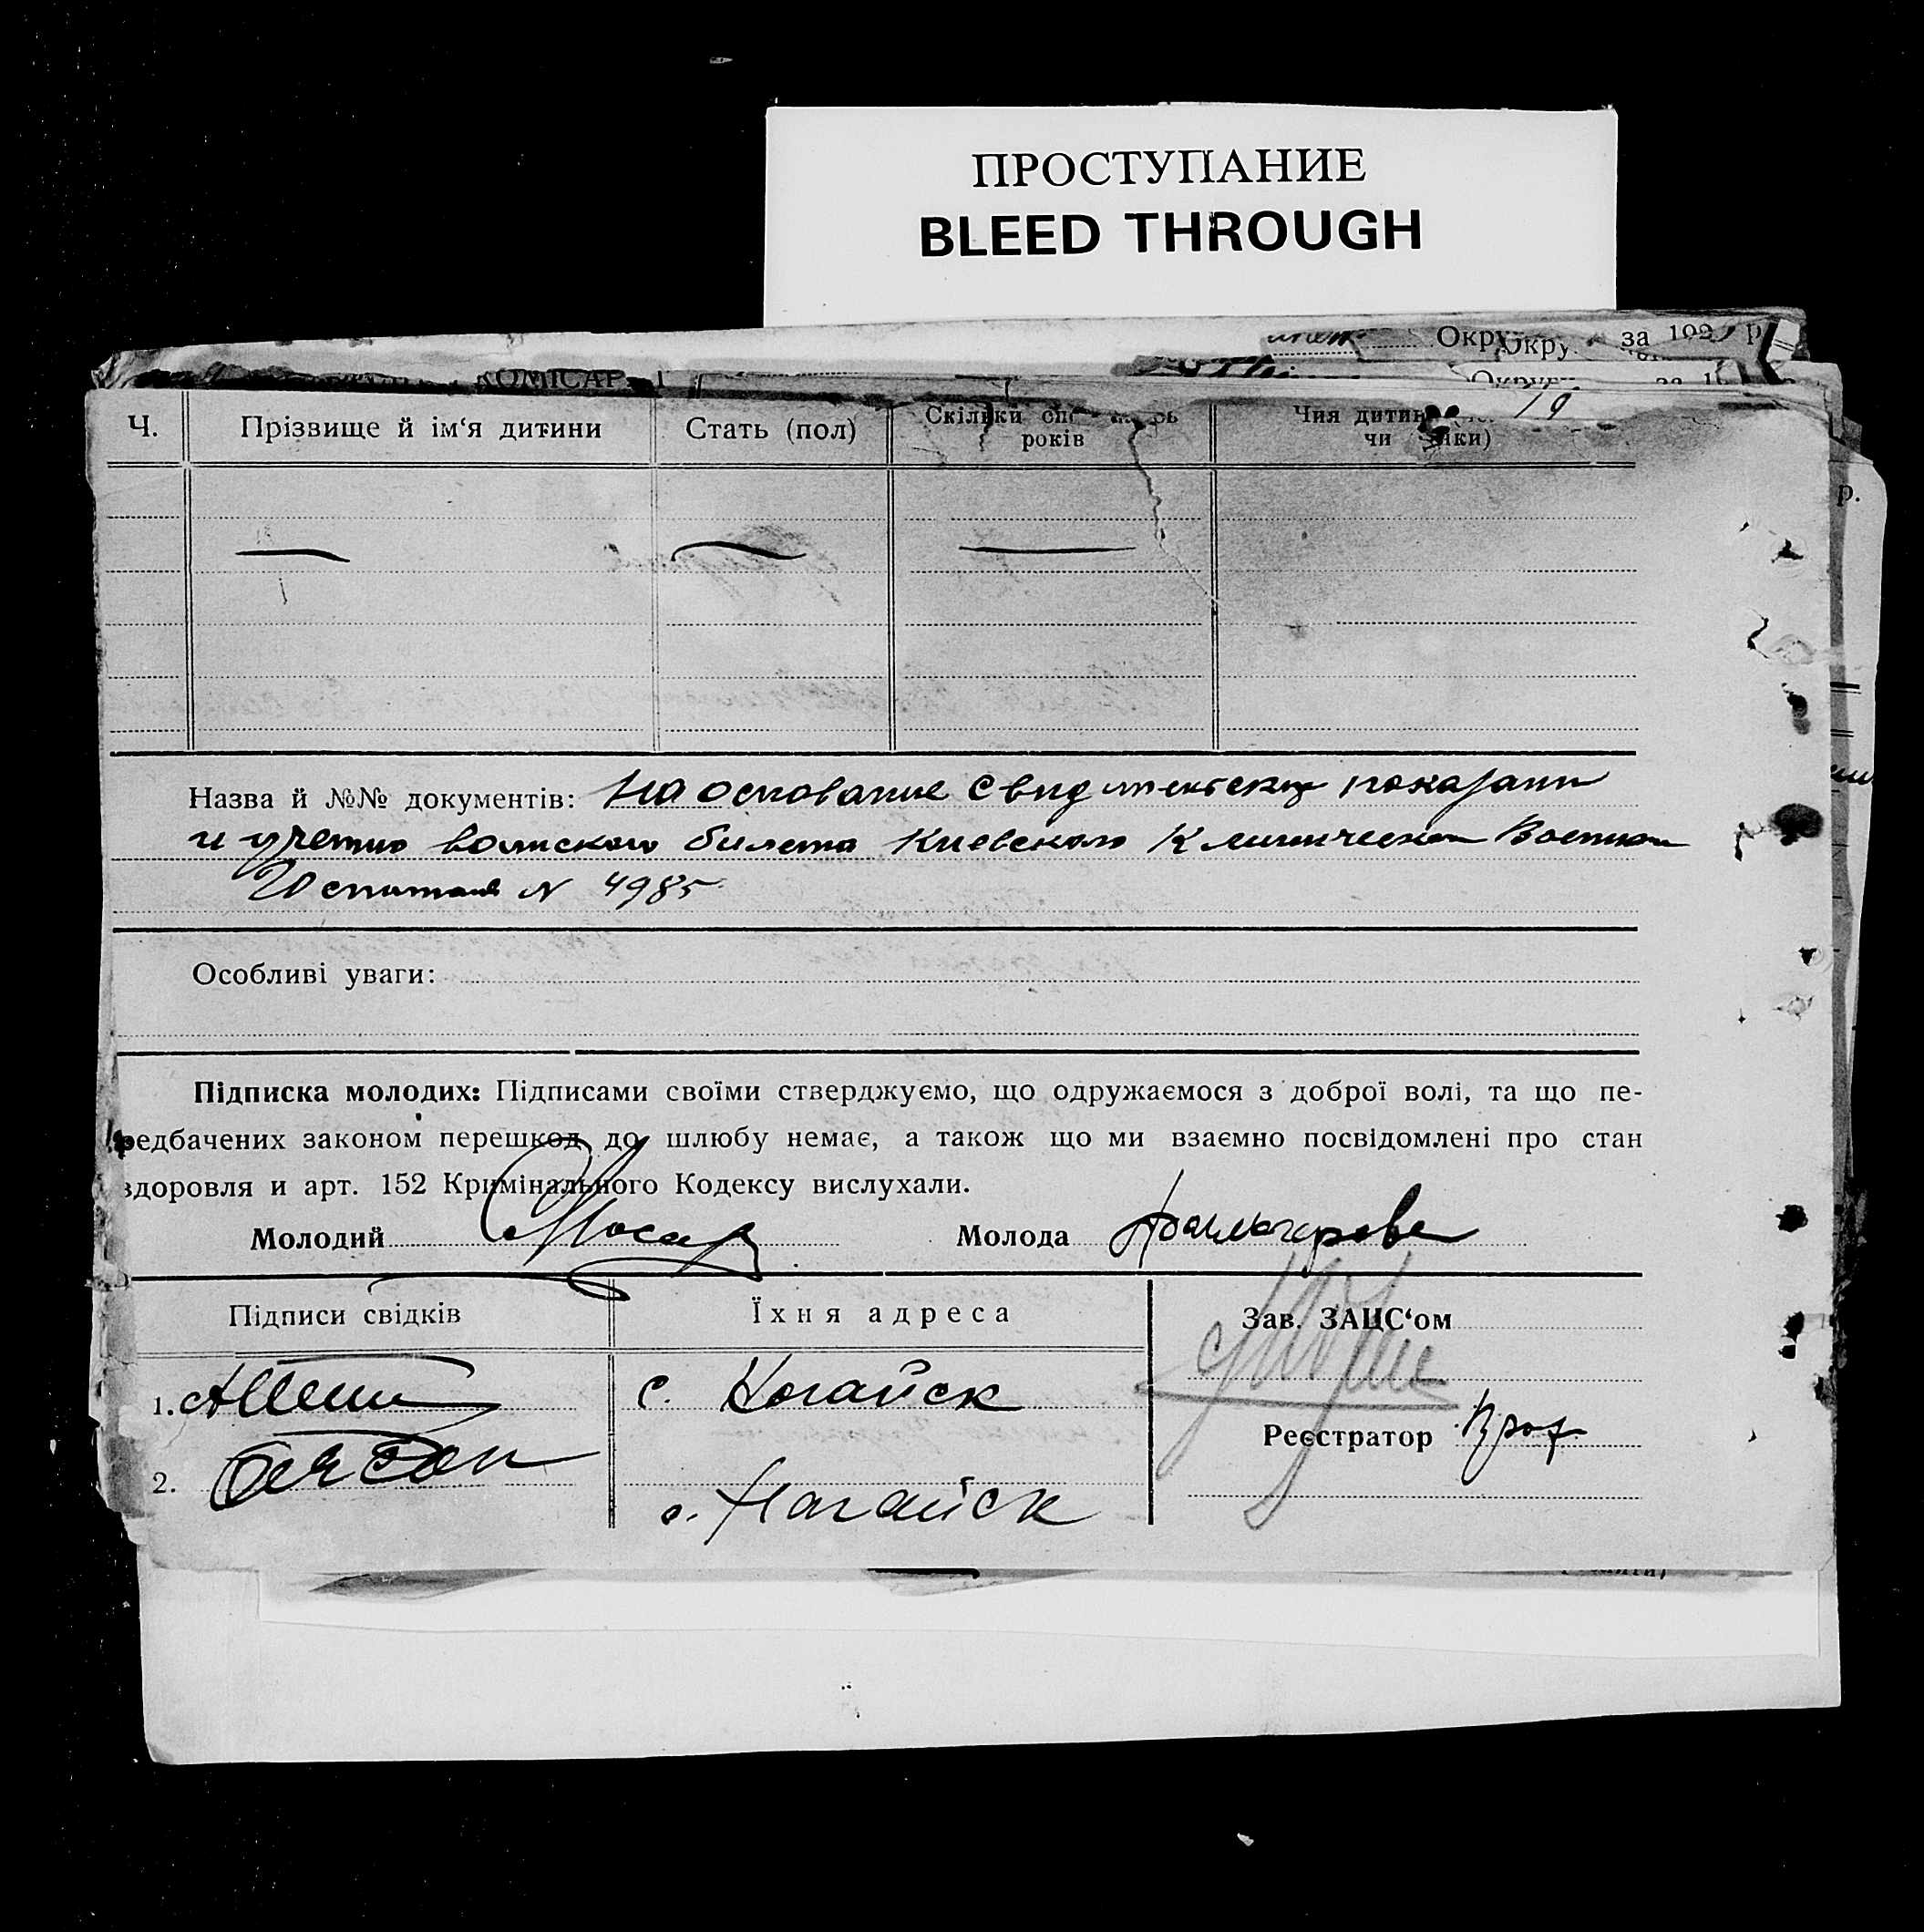 ПРОСТУПАНИЕ
BLEED THROUGH
Округ Окру за 192 р
КОМІСАР
Округ за 19
Ч. Прізвище й ім‘я дитини Стать (пол) Скільки років Чия дитина чи
р.
Назва й №№ документів: На основание свидетельских показани
и учетно воинского билета Киевского Клинического Военного
Госпиталя N 4985
Особливі уваги:
Підписка молодих: Підписами своїми стверджуємо, що одружаємося з доброї волі, та що пе-
редбачених законом перешкод до шлюбу немає, а також що ми взаємно посвідомлені про стан
здоровля и арт. 152 Кримінального Кодексу вислухали.
Молодий Молода
Підписи свідків Їхня адреса Зав. ЗАЦС‘ом
1. с. Ногайск
Реєстратор
2. с. Ногайск